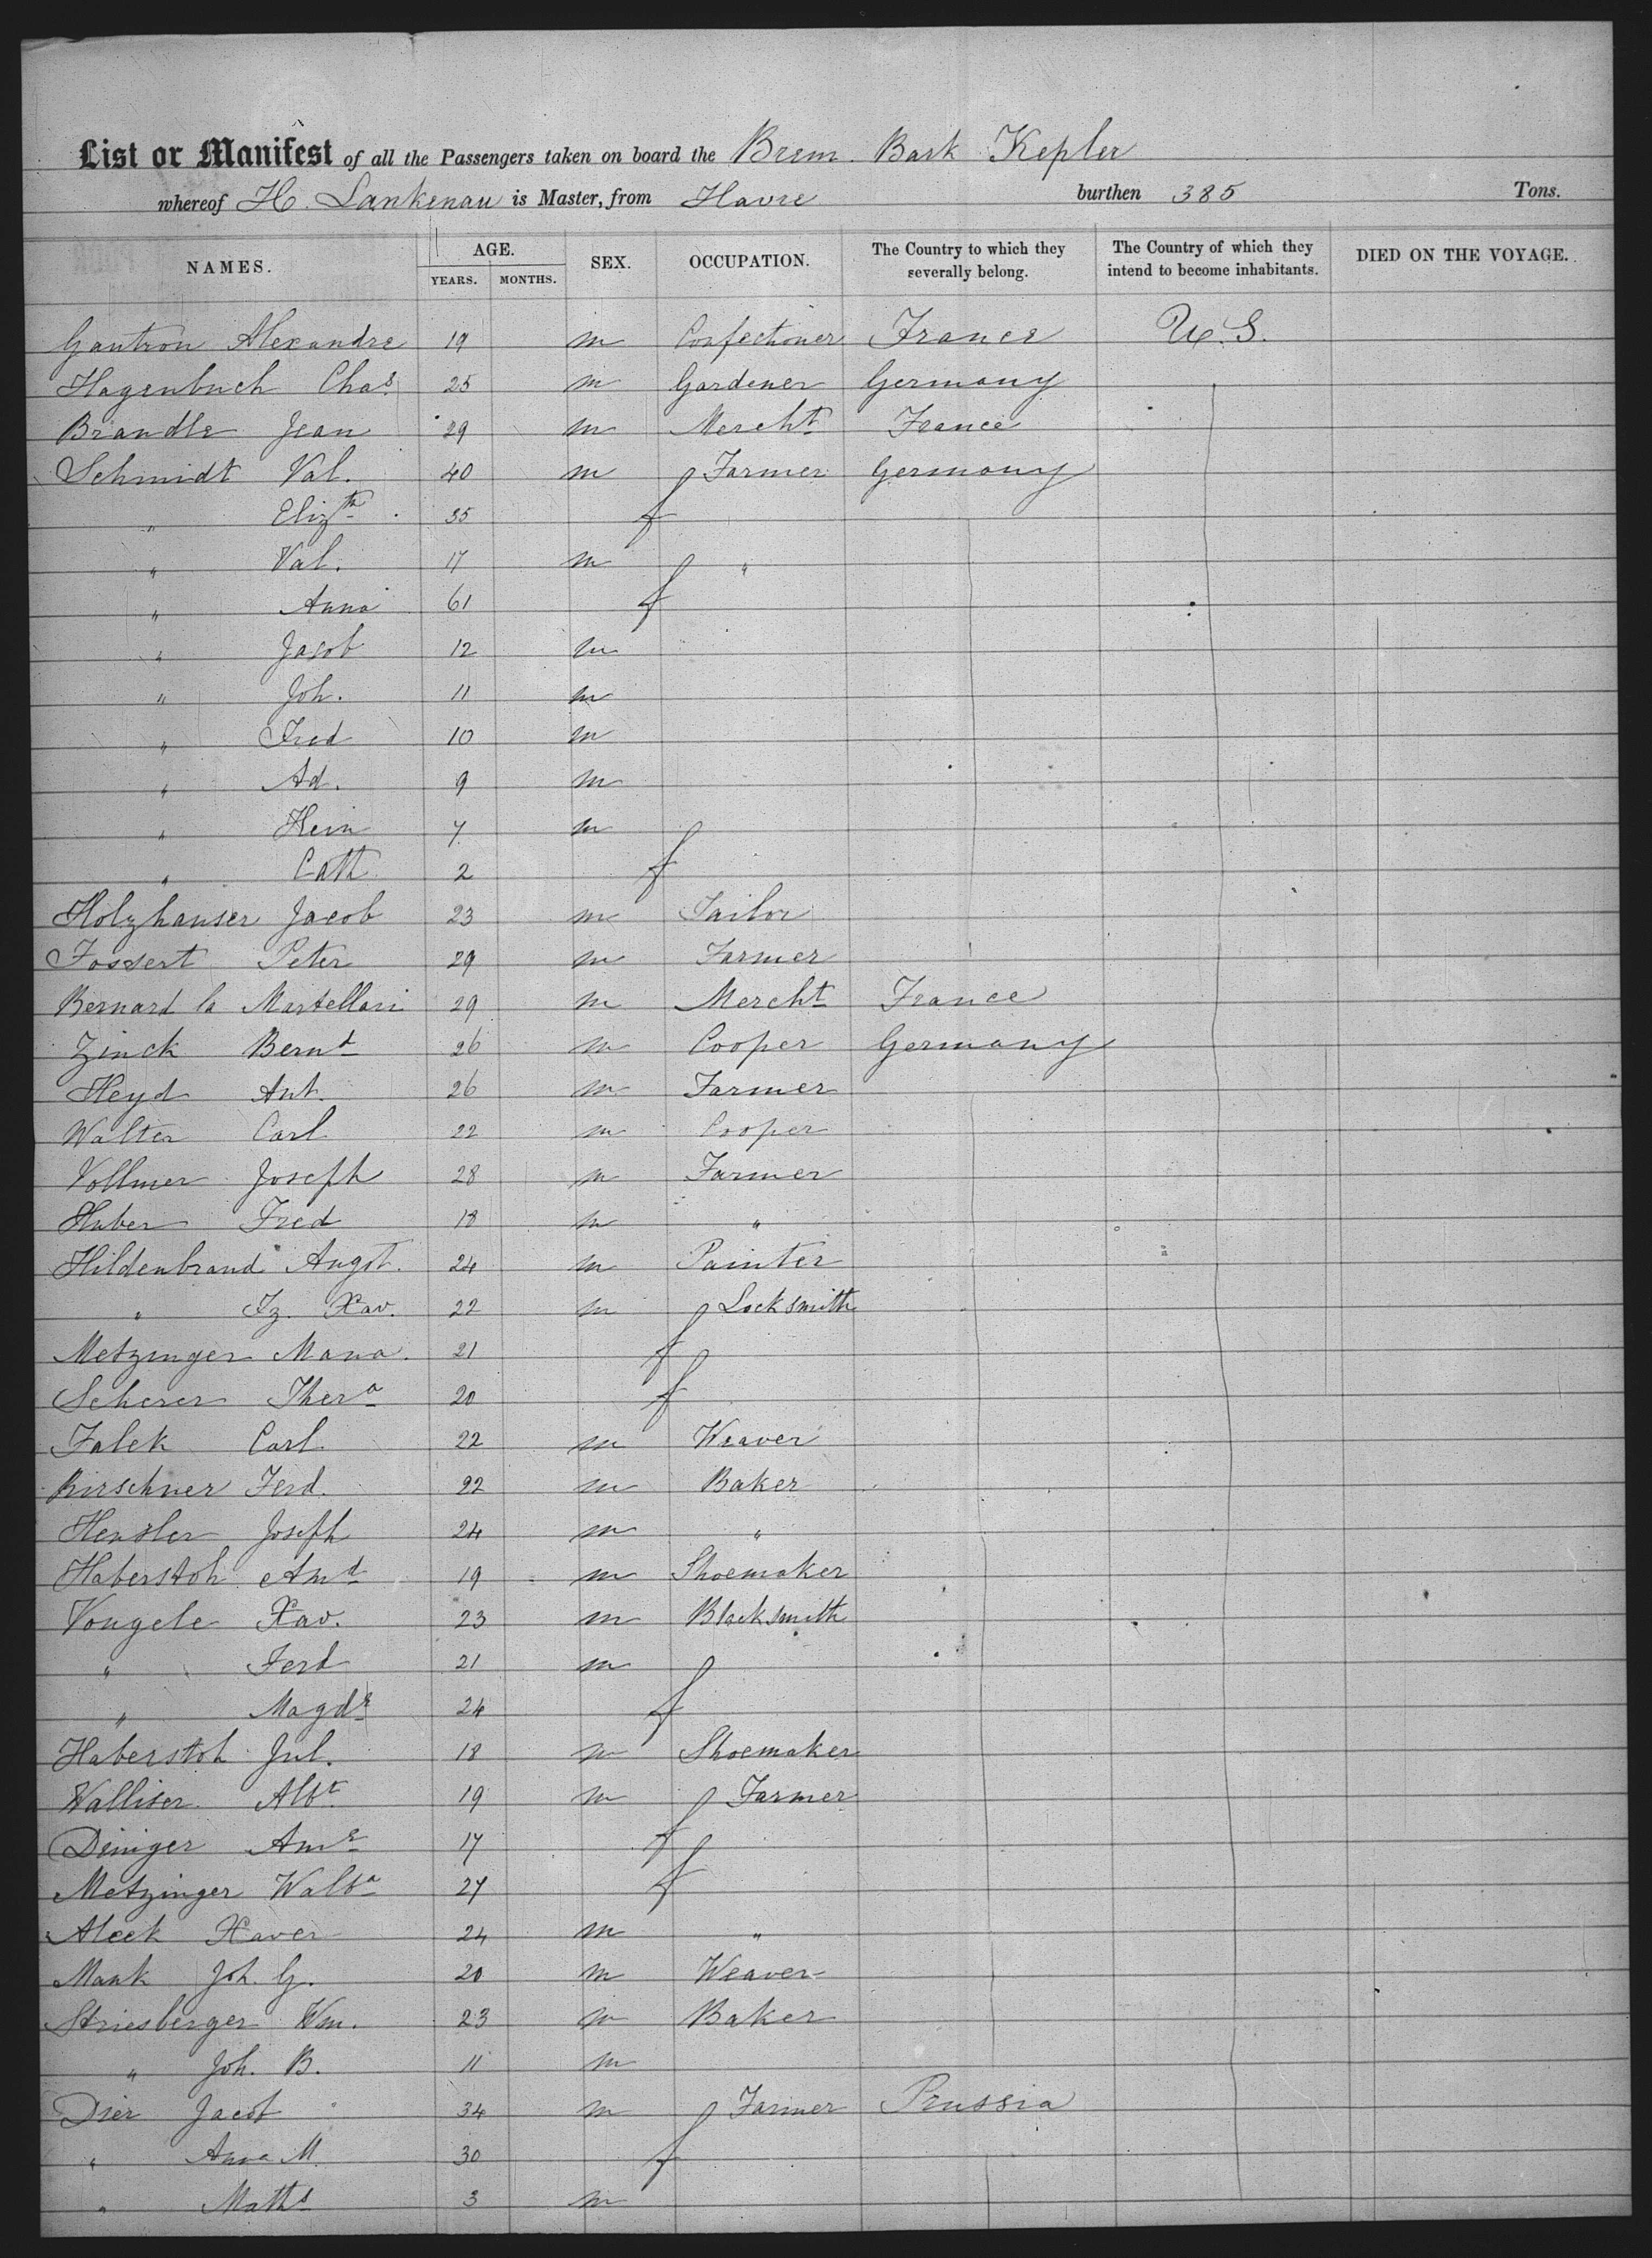 List or Manifest of all the Passengers taken on board the Brem. Bark Kepler
whereof H. Lankenau is Master, from Havre burthen 385 Tons.
NAMES. AGE. YEARS. MONTHS. SEX. OCCUPATION. The Country to which they severally belong. The Country of which they intend to become inhabitants. DIED ON THE VOYAGE.
Gautron Alexandre 19 m Confectioner France U.S.
Hagenbuch Chas. 25 m Gardener Germany
Brandle Jean 29 m Mercht France
Schmidt Val. 40 m Farmer Germany
" Elizth 35 f
" Val. 17 m "
" Anna 61 f
" Jacob 12 m
" Joh. 11 m
" Fred 10 m
" Ad. 9 m
" Hein 7 m
" Cath 2 f
Holzhauser Jacob 23 m Tailor
Fossert Peter 29 m Farmer
Bernard la Martellari 29 m Mercht France
Zinck Bernd 26 m Cooper Germany
Heyd Ant. 26 m Farmer
Walter Carl 22 m Cooper
Vollmer Joseph 28 m Farmer
Huber Fred 18 m "
Hildenbrand Augst. 24 m Painter
" Fz. Xav. 22 m Locksmith
Metzinger Maria 21 f
Scherer Thera 20 f
Falck Carl 22 m Weaver
Birschner Ferd. 22 m Baker
Hensler Joseph 24 m "
Haberstoh Amd 19 m Shoemaker
Vongele Xav. 23 m Blacksmith
" Ferd 21 m
" Magde 24 f
Haberstoh Jul. 18 m Shoemaker
Walliser Albt 19 m Farmer
Diniger Ame 17 f
Metzinger Walba 27 f
Aleck Xaver 24 m "
Mank Joh. G. 20 m Weaver
Striesberger Wm. 23 m Baker
" Joh. B. 11 m
Dier Jacob 34 m Farmer Prussia
" Anna M. 30 f
" Maths 3 m